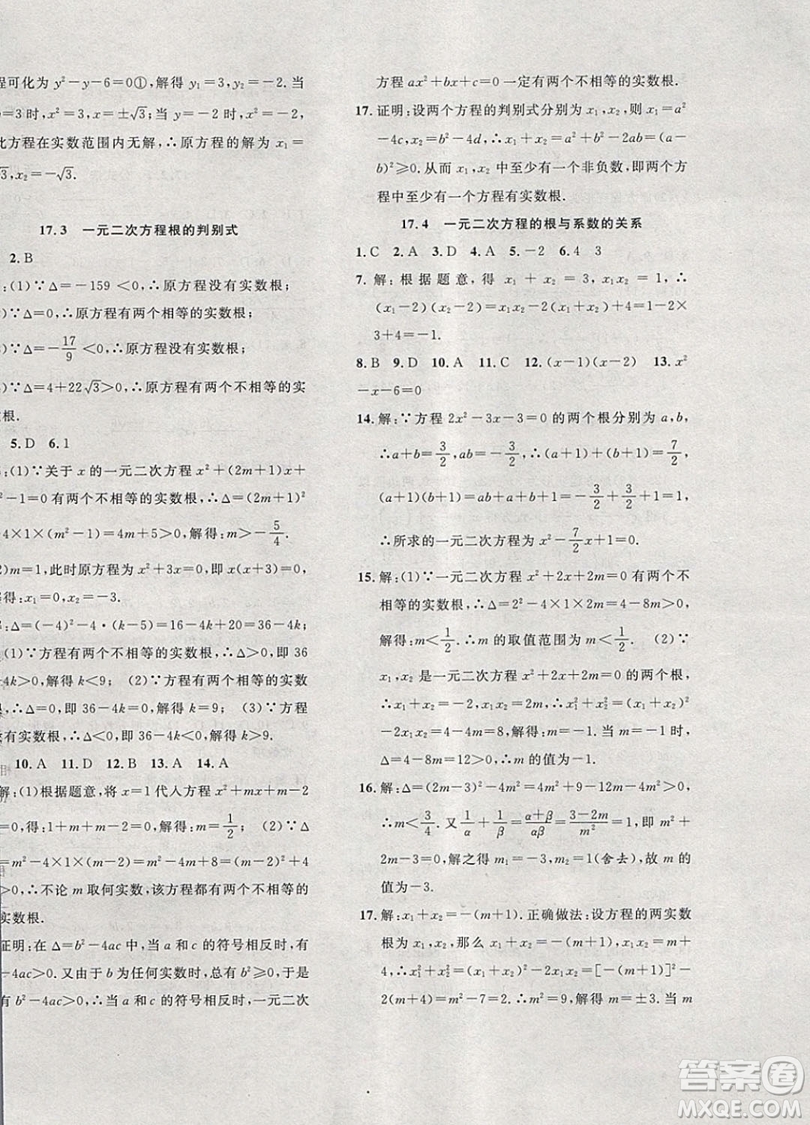 程可化为 y²-y-6=0①,解得 y₁=3,y₂=-2. 当
=3时,x²=3,x=±√3;当 y=-2时,x²=-2,
此方程在实数范围内无解,∴原方程的解为 x₁=
,x₂=-√3.
17.3 一元二次方程根的判别式
2.B
:(1)∵Δ=-159<0,∴原方程没有实数根;
)∵Δ=0,∴原方程有两个相等的实数根;
)∵Δ=-17/9<0,∴原方程没有实数根;
)∵Δ=4+22√3>0,∴原方程有两个不相等的实
数根.
5.D 6.1
:(1)∵关于 x 的一元二次方程 x²+(2m+1)x+
²-1=0有两个不相等的实数根,∴Δ=(2m+1)²
4×1×(m²-1)=4m+5>0,解得:m>-5/4.
2)m=1,此时原方程为 x²+3x=0,即 x(x+3)=
解得:x₁=0,x₂=-3.
解:Δ=(-4)²-4·(k-5)=16-4k+20=36-4k.
1)∵方程有两个不相等的实数根,∴Δ>0,即 36
4k>0,解得 k<9; (2)∵方程有两个相等的实数
,∴Δ=0,即 36-4k=0,解得 k=9; (3)∵方程
没有实数根,∴Δ<0,即 36-4k<0,解得 k>9.
10.A 11.A 12.B 13.A 14.A
解:(1)根据题意,将 x=1代人方程 x²+mx+m-2
=0,得:1+m+m-2=0,解得:m=1/2; (2)∵Δ
m²-4×1×(m-2)=m²-4m+8=(m-2)²+4
>0,∴不论 m 取何实数,该方程都有两个不相等的
实数根.
证明:在 Δ=b²-4ac 中,当 a 和 c 的符号相反时,有
4ac>0. 又由于 b 为任何实数时,总有 b²≥0,于是
有 b²-4ac>0,∴当 a 和 c 的符号相反时,一元二次
方程 ax²+bx+c=0有两个不相等的实数根.
17.证明:设两个方程的判别式分别为 x₁,x₂,则 x₁=a²
-4c,x₂=b²-4d,∴x₁+x₂=a²+b²-2ab=(a-
b)²≥0. 从而 x₁,x₂ 中至少有一个非负数,即两个方
程中至少有一个方程有实数根.
17.4 一元二次方程的根与系数的关系
1.C 2.A 3.D 4.A 5.-2 6.4 3
7.解:根据题意,得 x₁+x₂=3,x₁x₂=1,∴
(x₁-2)(x₂-2)=x₁x₂-2(x₁+x₂)+4=1-2×
3+4=-1.
8.B 9.D 10.A 11.C 12.(x-1)(x-2) 13.x²
-x-6=0
14.解:∵方程 2x²-3x-3=0的两个根分别为 a,b,
∴a+b=3/2,ab=-3/2,∴(a+1)+(b+1)=7/2,
(a+1)(b+1)=ab+a+b+1=-3/2+3/2+1=1,
∴所求的一元二次方程为 x²-7/2x+1=0.
15.解:(1)∵一元二次方程 x²+2x+2m=0有两个不
相等的实数根,∴Δ=2²-4×1×2m=4-8m>0,
解得:m<1/2. ∴m 的取值范围为 m<1/2. (2)∵
x₁,x₂ 是一元二次方程 x²+2x+2m=0的两个根,
∴x₁+x₂=-2,x₁x₂=2m,∴x₁²+x₂²=(x₁+x₂)²
-2x₁x₂=4-4m=8,解得:m=-1. 当 m=-1时,
Δ=4-8m=12>0. ∴m 的值为-1.
16.解:Δ=(2m-3)²-4m²=4m²+9-12m-4m²>0,
∴m<3/4. 又 1/α+1/β=(α+β)/αβ=(3-2m)/m²=1,即
m²+2m-3=0,m₁=-3,m₂=1(舍去),故 m 的
值为-3.
17.解:x₁+x₂=-(m+1). 正确做法:设方程的两实数
根为 x₁,x₂,那么 x₁+x₂=-(m+1),x₁x₂=m+
4,∴x₁²+x₂²=(x₁+x₂)²-2x₁x₂=[-(m+1)]²-
2(m+4)=m²-7=2. ∴m²=9,解得 m=±3. 当 m
答案圈
MXQE.COM